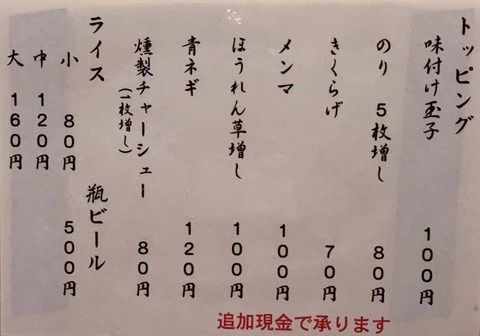 トッピング
味付け玉子 100円
のり 5枚増し 80円
きくらげ 70円
メンマ 100円
ほうれん草増し 100円
青ネギ 120円
燻製チャーシュー(1枚増し) 80円
ライス
小 80円
中 120円
大 160円
瓶ビール
500円
追加現金で承ります